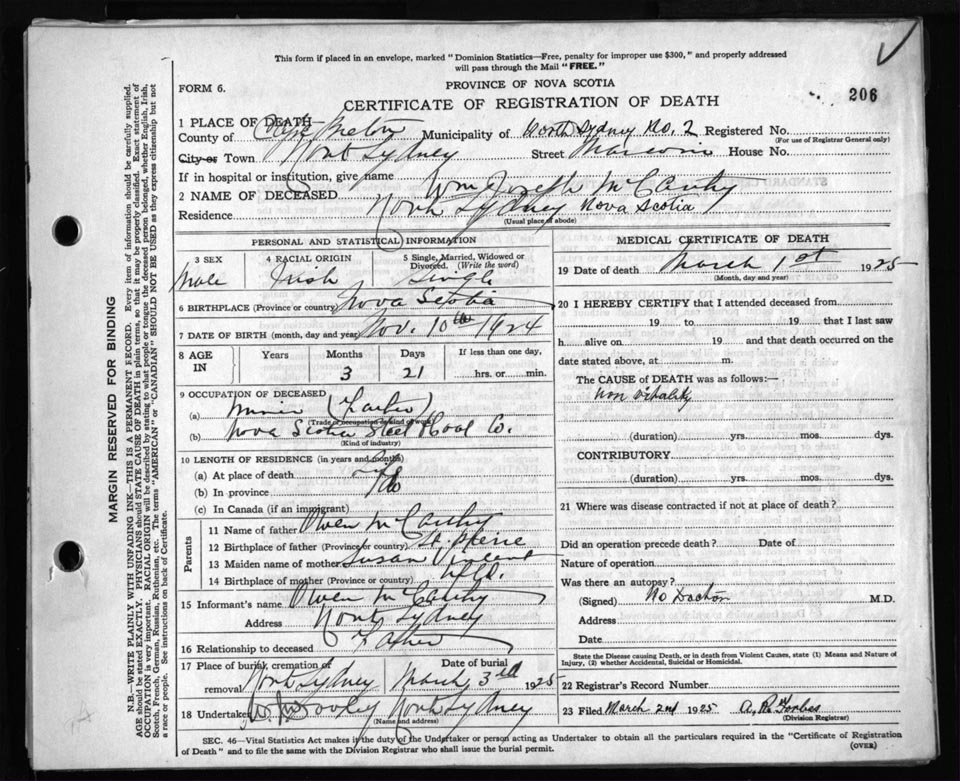 This form if placed in an envelope, marked "Dominion Statistics—Free, penalty for improper use $300," and properly addressed
will pass through the Mail "FREE."
FORM 6.
PROVINCE OF NOVA SCOTIA
206
CERTIFICATE OF REGISTRATION OF DEATH
1 PLACE OF DEATH—
County of Cape Breton Municipality of North Sydney No. 2 Registered No.
(For use of Registrar General only)
City or Town North Sydney Street House No.
If in hospital or institution, give name
2 NAME OF DECEASED Wm Joseph McCarthy
Residence North Sydney Nova Scotia
(Usual place of abode)
PERSONAL AND STATISTICAL INFORMATION
3 SEX 4 RACIAL ORIGIN 5 Single, Married, Widowed or
Divorced. (Write the word)
Male Irish Single
6 BIRTHPLACE (Province or country) Nova Scotia
7 DATE OF BIRTH (month, day and year) Nov. 10th 1924
8 AGE IN Years Months Days If less than one day,
3 21 hrs. or min.
9 OCCUPATION OF DECEASED
(a) Miner (Father)
(Trade or occupation by kind of work)
(b) Nova Scotia Steel & Coal Co.
(Kind of industry)
10 LENGTH OF RESIDENCE (in years and months)
(a) At place of death Life
(b) In province
(c) In Canada (if an immigrant)
Parents
11 Name of father Owen McCarthy
12 Birthplace of father (Province or country) St. Pierre
13 Maiden name of mother Susan Vincent
14 Birthplace of mother (Province or country) Nfld.
15 Informant's name Owen McCarthy
Address North Sydney
16 Relationship to deceased Father
17 Place of burial, cremation or removal North Sydney Date of burial March 3rd 1925
18 Undertaker North Sydney
(Name and address)
MEDICAL CERTIFICATE OF DEATH
19 Date of death March 1st 1925
(Month, day and year)
20 I HEREBY CERTIFY that I attended deceased from
19 to 19 that I last saw
h alive on 19 and that death occurred on the
date stated above, at m.
The CAUSE of DEATH was as follows:—
Non vitality
(duration) yrs. mos. dys.
CONTRIBUTORY
(duration) yrs. mos. dys.
21 Where was disease contracted if not at place of death?
Did an operation precede death? Date of
Nature of operation
Was there an autopsy?
(Signed) No Doctor M.D.
Address
Date
State the Disease causing Death, or in death from Violent Causes, state (1) Means and Nature of
Injury, (2) whether Accidental, Suicidal or Homicidal.
22 Registrar's Record Number
23 Filed March 2nd 1925 A. R. Forbes
(Division Registrar)
SEC. 46—Vital Statistics Act makes it the duty of the Undertaker or person acting as Undertaker to obtain all the particulars required in the "Certificate of Registration
of Death" and to file the same with the Division Registrar who shall issue the burial permit.
(OVER)
MARGIN RESERVED FOR BINDING
N.B.—WRITE PLAINLY WITH UNFADING INK—THIS IS A PERMANENT RECORD. Every item of information should be carefully supplied.
AGE should be stated EXACTLY. PHYSICIANS should STATE CAUSE OF DEATH in plain terms, so that it may be properly classified. Exact statement of
OCCUPATION is very important. RACIAL ORIGIN will be described by stating to what people or tongue the deceased person belonged, whether English, Irish,
Scotch, French, German, Russian, Ruthenian, etc. The terms "AMERICAN" or "CANADIAN" SHOULD NOT BE USED as they express citizenship but not
a race or people. See instructions on back of Certificate.